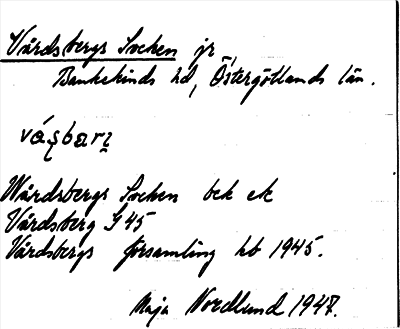 Vårdsbergs Socken jr
Bankekinds hd, Östergötlands län.
Wårdsbergs Socken bek ek
Vårdsberg G 45
Vårdsbergs församling hb 1945.
Maja Nordlund 1947.